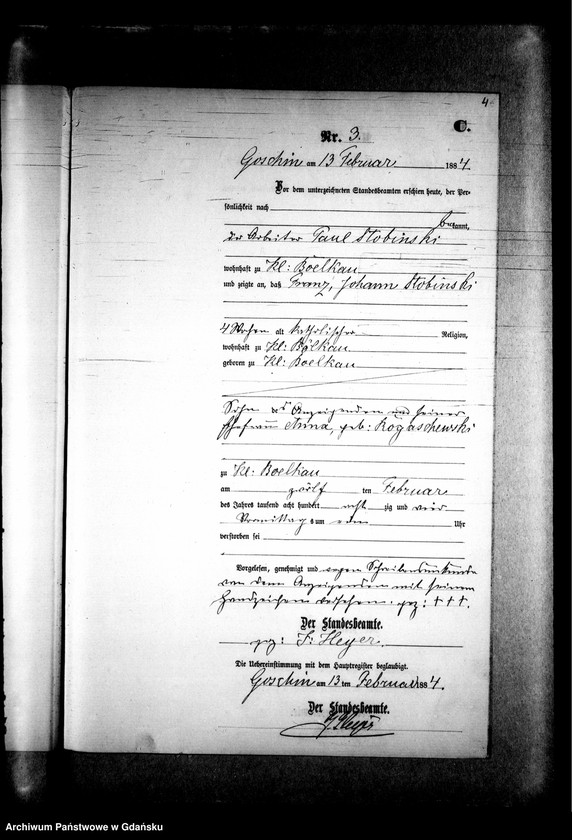 4
C.
Nr. 3.
Goschin am 13 Februar 1884
Vor dem unterzeichneten Standesbeamten erschien heute, der Per-
sönlichkeit nach
bekannt,
der Arbeiter Paul Stobinski
wohnhaft zu Kl: Boelkau
und zeigte an, daß Franz, Johann Stobinski
4 Wochen alt katholischer Religion,
wohnhaft zu Kl: Bölkau
geboren zu Kl: Boelkau
Sohn des Anzeigenden und seiner
Ehefrau Anna, geb: Rogaschewski
zu Kl: Boelkau
am zwölf ten Februar
des Jahres tausend acht hundert acht zig und vier
Vormittags um Uhr
verstorben sei
Vorgelesen, genehmigt und wegen Schreibensunkunde
von dem Anzeigenden mit seinem
Handzeichen versehen. gez: † † †.
Der Standesbeamte.
gez: F. Heyer.
Die Uebereinstimmung mit dem Hauptregister beglaubigt.
Goschin am 13 ten Februar 1884.
Der Standesbeamte.
Heyer
Archiwum Państwowe w Gdańsku